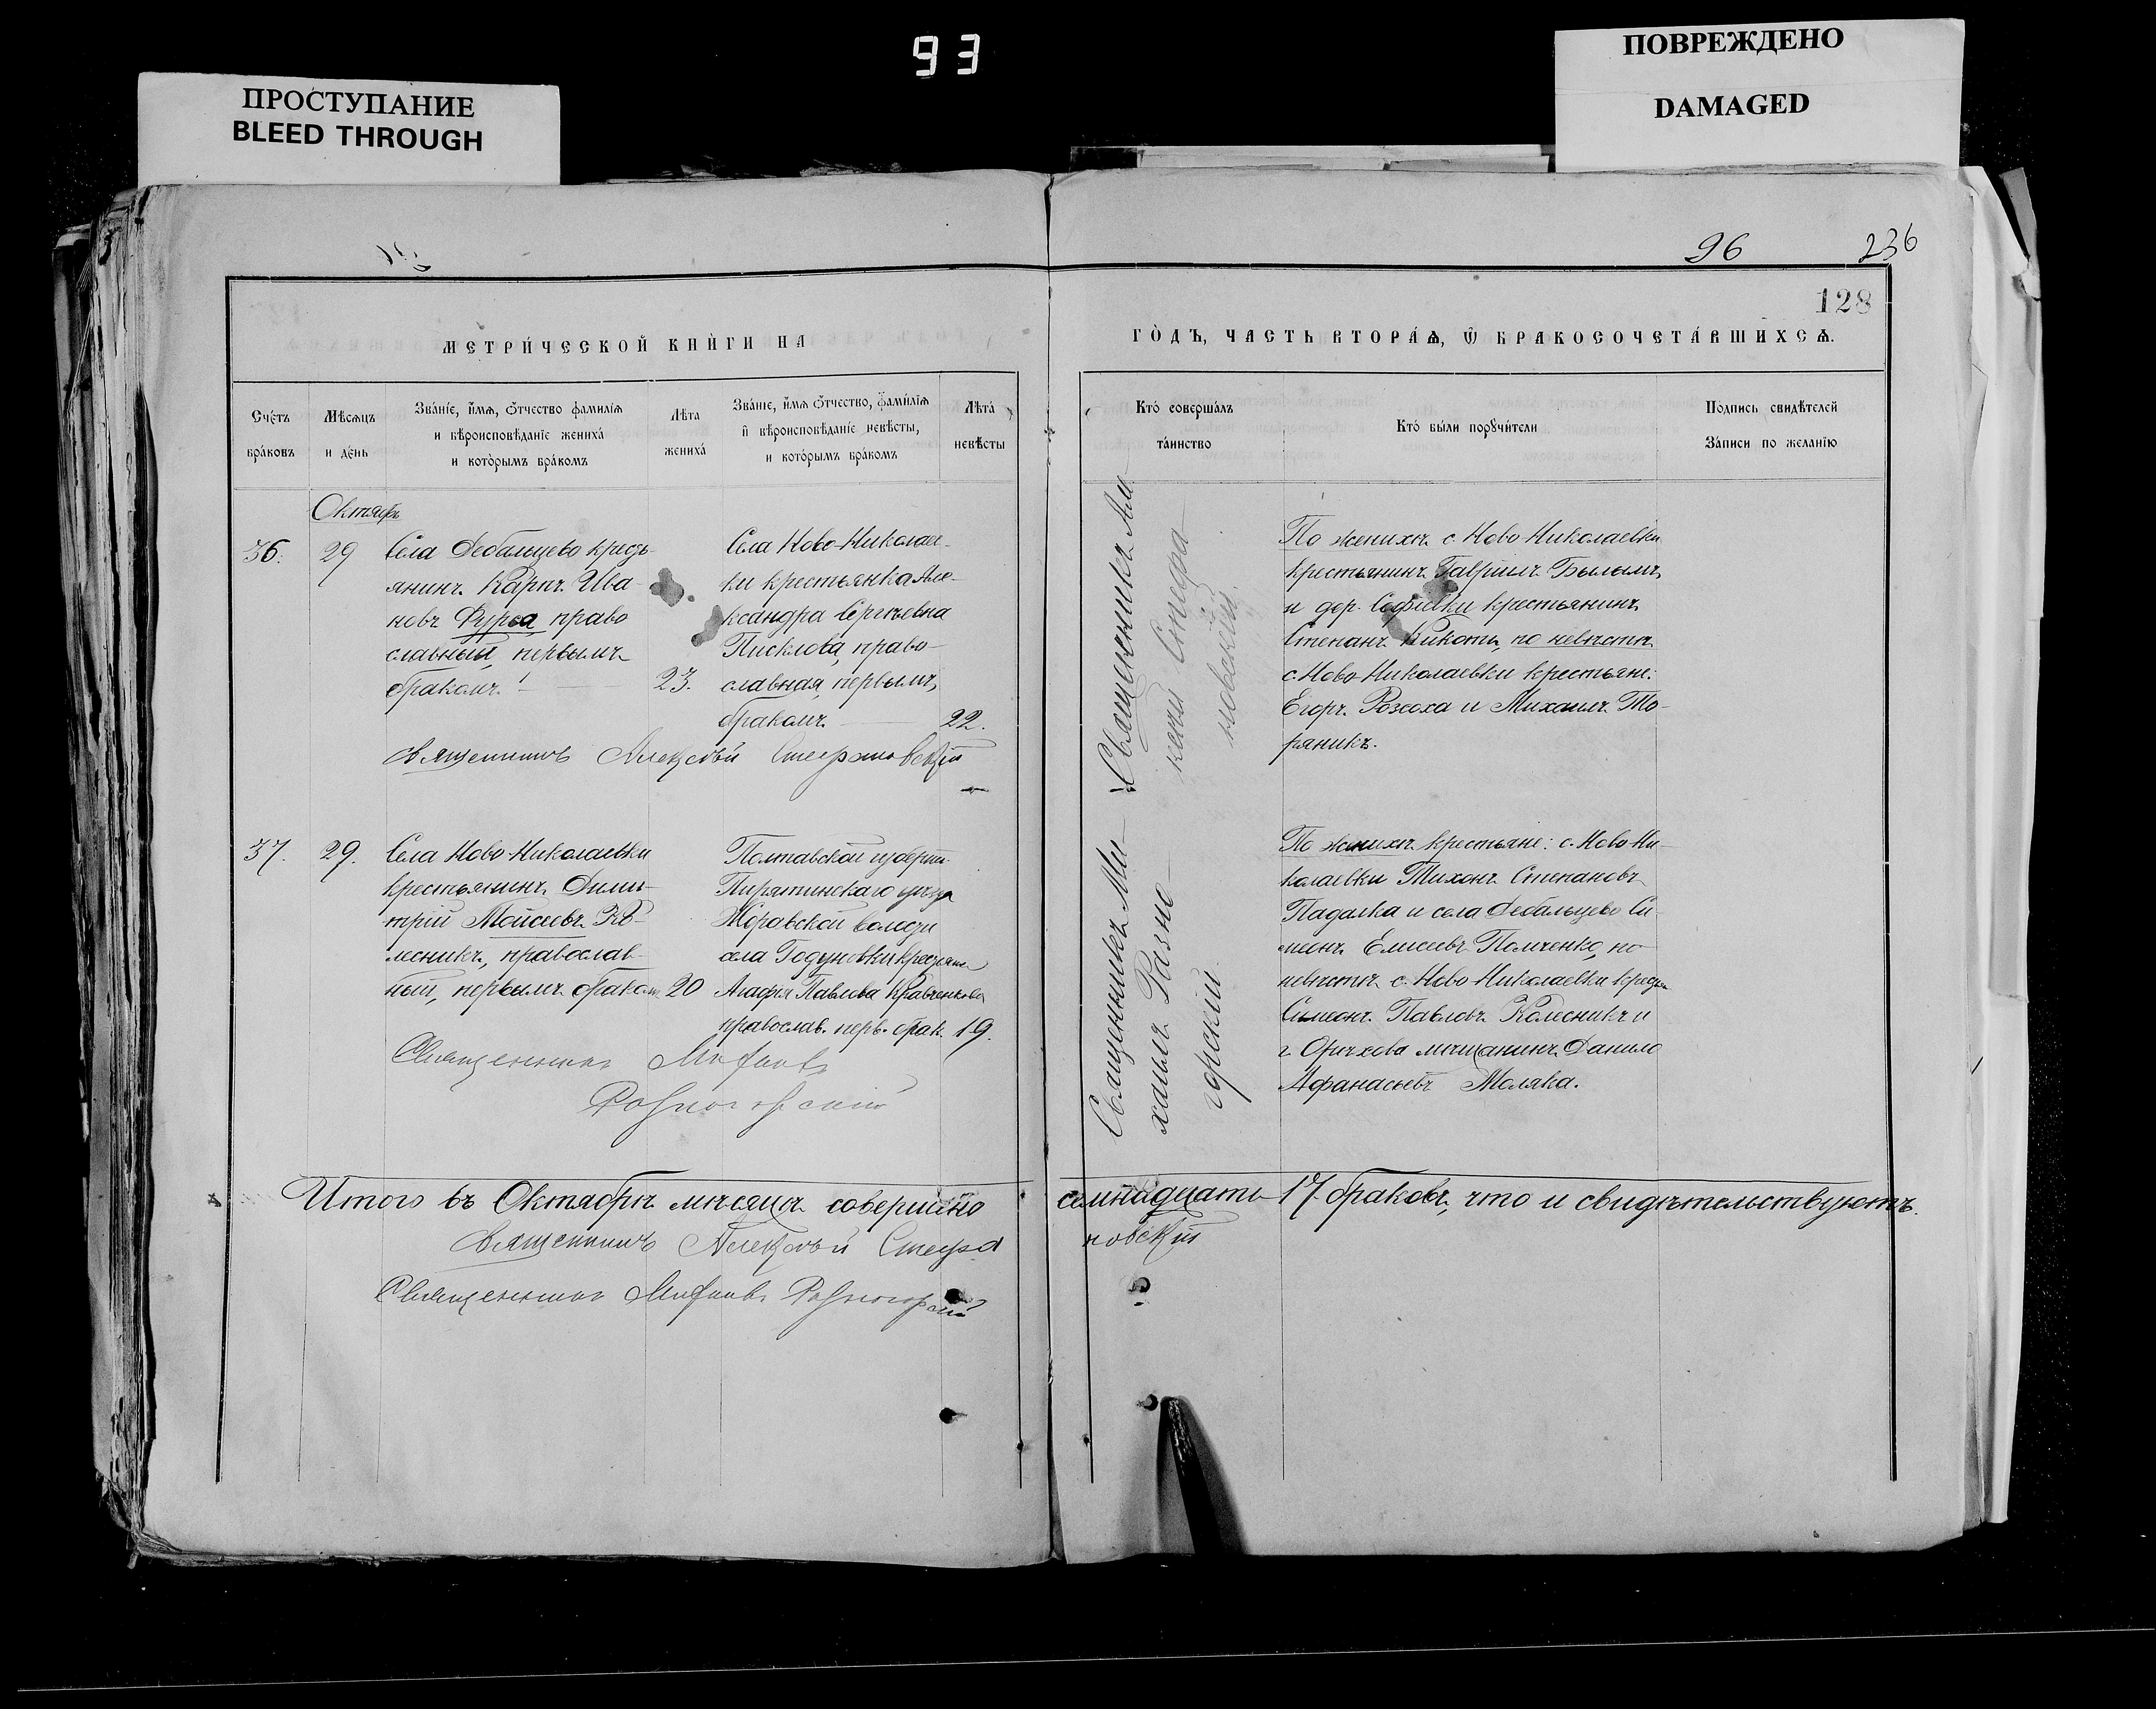 93
ПРОСТУПАНИЕ
BLEED THROUGH
ПОВРЕЖДЕНО
DAMAGED
96
236
128
МЕТРИ́ЧЕСКОЙ КНЍГИ НА
ГО́ДЪ, ЧАСТЬ ВТОРА́Ѧ, Ѿ БРАКОСОЧЕТА́ВШИХСѦ.
Сче́тъ бра́ковъ
Мѣсѧцъ и де́нь
Зва́нїе, и́мѧ, ѻ́тчество фамилїѧ
и вѣроисповѣданїе жениха́
и кото́рымъ бра́комъ
Лѣта жениха́
Зва́нїе, и́мѧ ѻ́тчество, фами́лїѧ
и҆ вѣроисповѣданїе невѣсты,
и кото́рымъ бра́комъ
Лѣта́ невѣсты
Кто́ соверша́лъ та́инство
Кто́ бы́ли порꙋчи́тели
Подпись свидѣтелей
За́писи по жела́нїю
Октябрь
36.
29
Села Дебальцево кресть
янинъ Карпъ Ива-
новъ Фурса, право
славный, первымъ
бракомъ.
23.
Села Ново-Николаев-
ки крестьянка Але-
ксандра Сергѣевна
Писклова, право-
славная, первымъ
бракомъ.
22.
Священникъ Алексѣй Стефановскій
Священникъ Але-
ксѣй Стефа-
новскій.
По женихѣ с. Ново Николаевки
крестьянинъ Гавріилъ Былымъ
и дер. Софіевки крестьянинъ
Степанъ Кикоть, по невѣстѣ
с. Ново Николаевки крестьяне:
Егоръ Розсоха и Михаилъ То-
ряникъ.
37.
29.
Села Ново-Николаевки
крестьянинъ Дими-
трій Мойсеевъ Ко-
лесникъ, православ-
ный, первымъ бракомъ
20
Полтавской губерніи
Пирятинскаго уѣзда
Журавской волости
села Годуновки крестьянка
Агафія Павлова Кравченкова
православ. перв. брак.
19.
Священникъ Михаилъ
Разногорскій
Священникъ Ми-
хаилъ Разно-
горскій
По женихѣ крестьяне: с. Ново Ни-
колаевки Тихонъ Степановъ
Падалка и села Дебальцево Си-
меонъ Елисеевъ Помченко, по
невѣстѣ с. Ново Николаевки крест.
Симеонъ Павловъ Колесникъ и
г. Орѣхова мѣщанинъ Данило
Афанасьевъ Моляка.
Итого въ Октябрѣ мѣсяцѣ совершено семнадцать 17 браковъ, что и свидѣтельствуютъ.
Священникъ Алексѣй Стефановскій
Священникъ Михаилъ Разногорскій